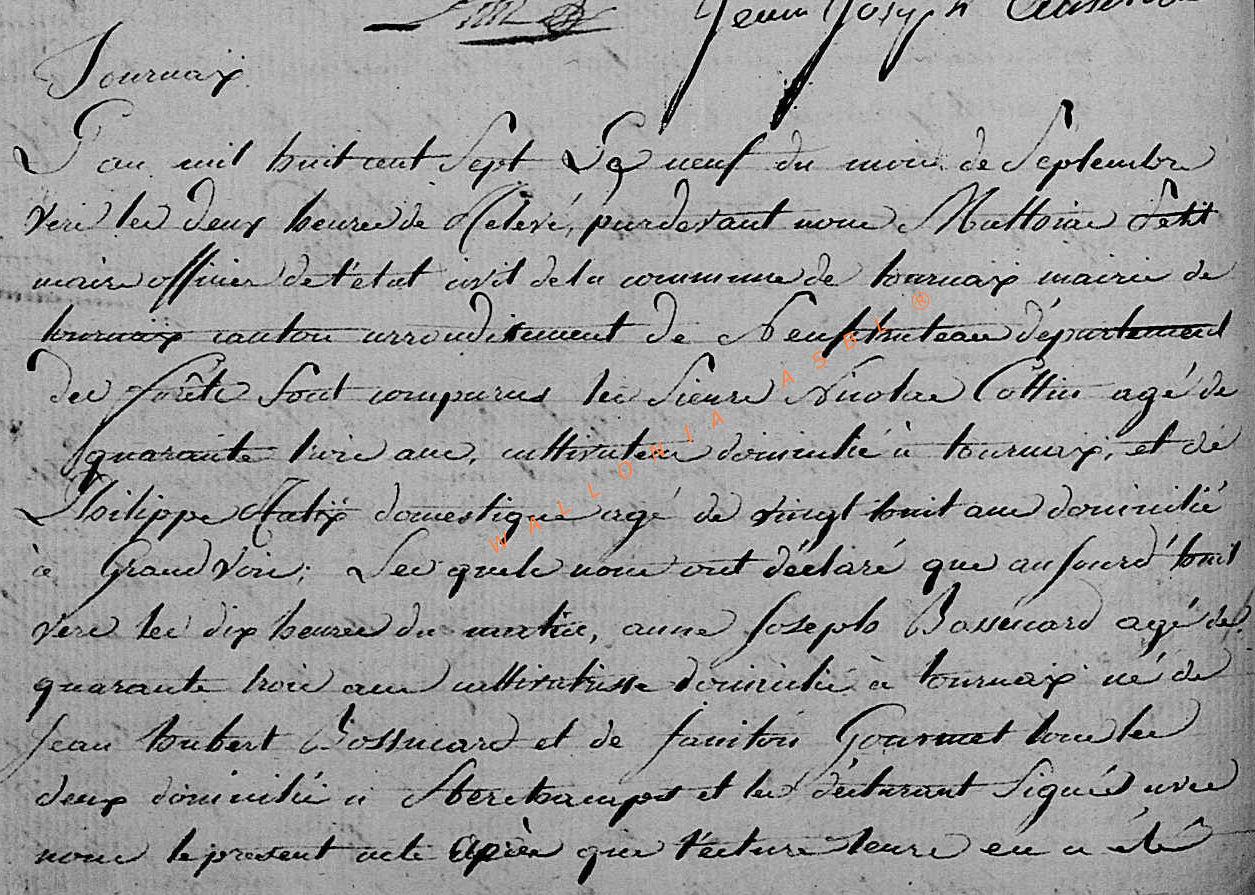 Jean Joseph
Tournaix
L'an mil huit cent Sept Le neuf du mois de Septembre
vers les deux heures de Relevé, pardevant nous Mathias Petit
maire officier de l'état civil de la commune de tournaix mairie de
tournaix canton arrondissement de Neufchateau département
des forêts Sont comparus les Sieurs Nicolas Collin agé de
quarante trois ans, cultivateur domicilié à tournaix, et de
Philippe domestique agé de vingt huit ans domicilié
à Grand Voir; Les quels nous ont déclaré que aujourd'huit
vers les dix heures du matin, anne Joseph Bossicard agé de
quarante trois ans cultivatrisse domicilié à tournaix né de
Jean hubert Bossicard et de faniton Gourmet tous les
deux domicilié a Sberchamps et les déclarant Signés avec
nous le présent acte après que lecture leurs en a été
WALLONIA ASBL ®